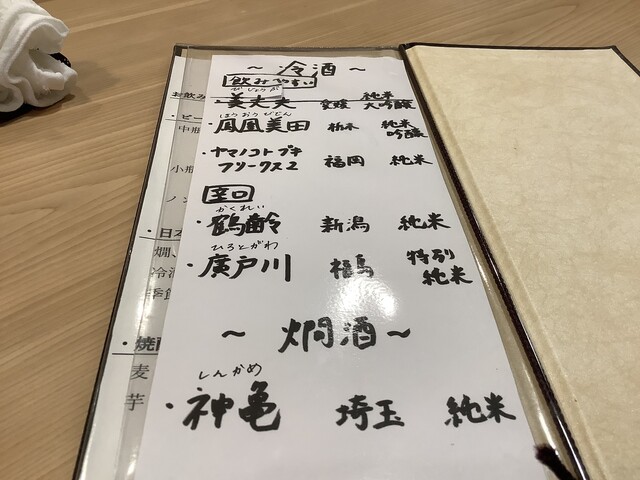 ～ 冷酒 ～
飲みやすい
びじょうふ
・美丈夫 愛媛 純米大吟醸
ほうおうびでん
・鳳凰美田 栃木 純米吟醸
・ヤマノコトブキ
フリークス2 福岡 純米
辛口
かくれい
・鶴齢 新潟 純米
ひろとがわ
・廣戸川 福島 特別純米
～ 燗酒 ～
しんかめ
・神亀 埼玉 純米
お飲み
・ビー
中瓶
小瓶
ノン
・日本
燗、
冷酒
季節
・焼酎
麦
芋